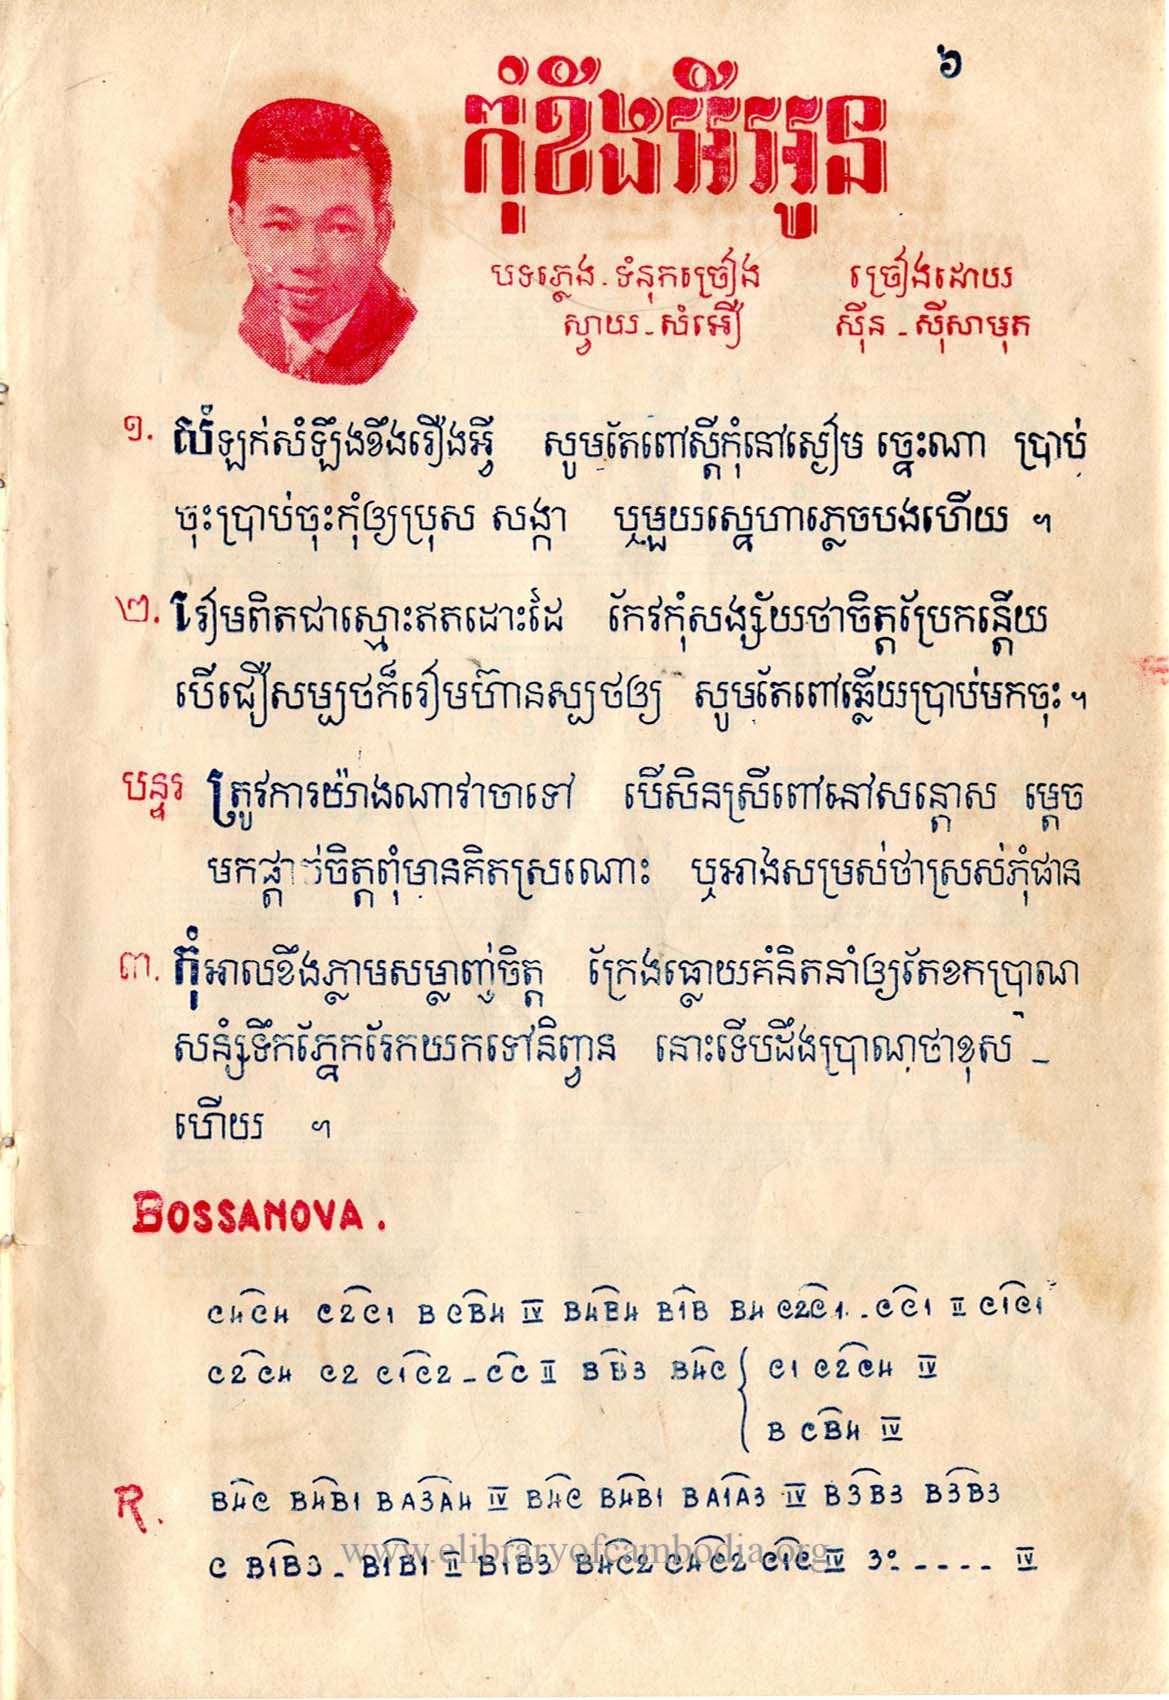 ៦
កុំខឹងអីអូន
បទភ្លេង . ទំនុកច្រៀង ច្រៀងដោយ
ស្វាយ - សំអឿ ស៊ីន - ស៊ីសាមុត
១. សំឡក់សំឡឹងខឹងរឿងអ្វី សូមតែពៅស្ដីកុំនៅស្ងៀម ច្នេះណា ប្រាប់
ចុះប្រាប់ចុះកុំឲ្យប្រុស សង្កា ឬមួយស្នេហាភ្លេចបងហើយ ។
២. រៀមពិតជាស្មោះឥតដោះដៃ កែវកុំសង្ស័យថាចិត្តប្រែកន្តើយ
បើជឿសម្បថក៏រៀមហ៊ានស្បថឲ្យ សូមតែពៅឆ្លើយប្រាប់មកចុះ ។
បន្ទរ ត្រូវការយ៉ាងណាវាចាទៅ បើសិនស្រីពៅនៅសន្តោស ម្ដេច
មកផ្ដាច់ចិត្តពុំមានគិតស្រណោះ ឬអាងសម្រស់ថាស្រស់ភុំផាន
៣. កុំអាលខឹងភ្លាមសម្លាញ់ចិត្ត ក្រែងធ្លោយគំនិតនាំឲ្យតែខកប្រាណ
សន្សំទឹកភ្នែករែកយកទៅនិព្វាន នោះទើបដឹងប្រាណថាខុស -
ហើយ ។
BOSSANOVA .
C4C4 C2C1 B CB4 IV B4B4 B1B B4 C2C1 . - CC1 II C1C1
C2C4 C2 C1C2 - CC II BB3 B4C { C1 C2C4 IV
B CB4 IV
R. B4C B4B1 B A3A4 IV B4C B4B1 B A1A3 IV B3B3 B3B3
C B1B3 - B1B1 II B1B3 B4C2 C4C2 C1C IV 3° - - - - IV
www.elibraryofcambodia.org